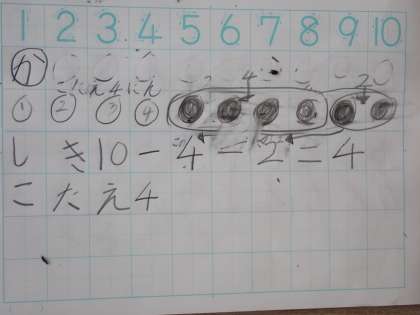 1 2 3 4 5 6 7 8 9 10
か
4 2
① ② ③ ④
しき10－4－2＝4
こたえ4